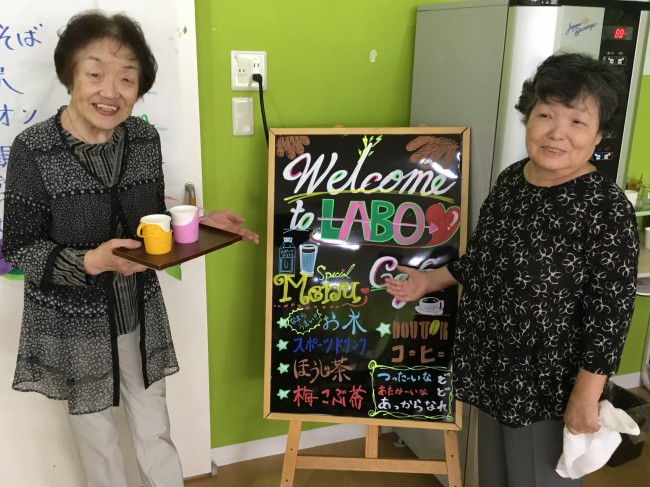 そば
オン
Welcome
to LABO
Special
Menu
Cafe
お水
スポーツドリンク
ほうじ茶
梅こぶ茶
DOUTOR
コーヒー
つったーいなど
あたかーいなど
あっからなれ